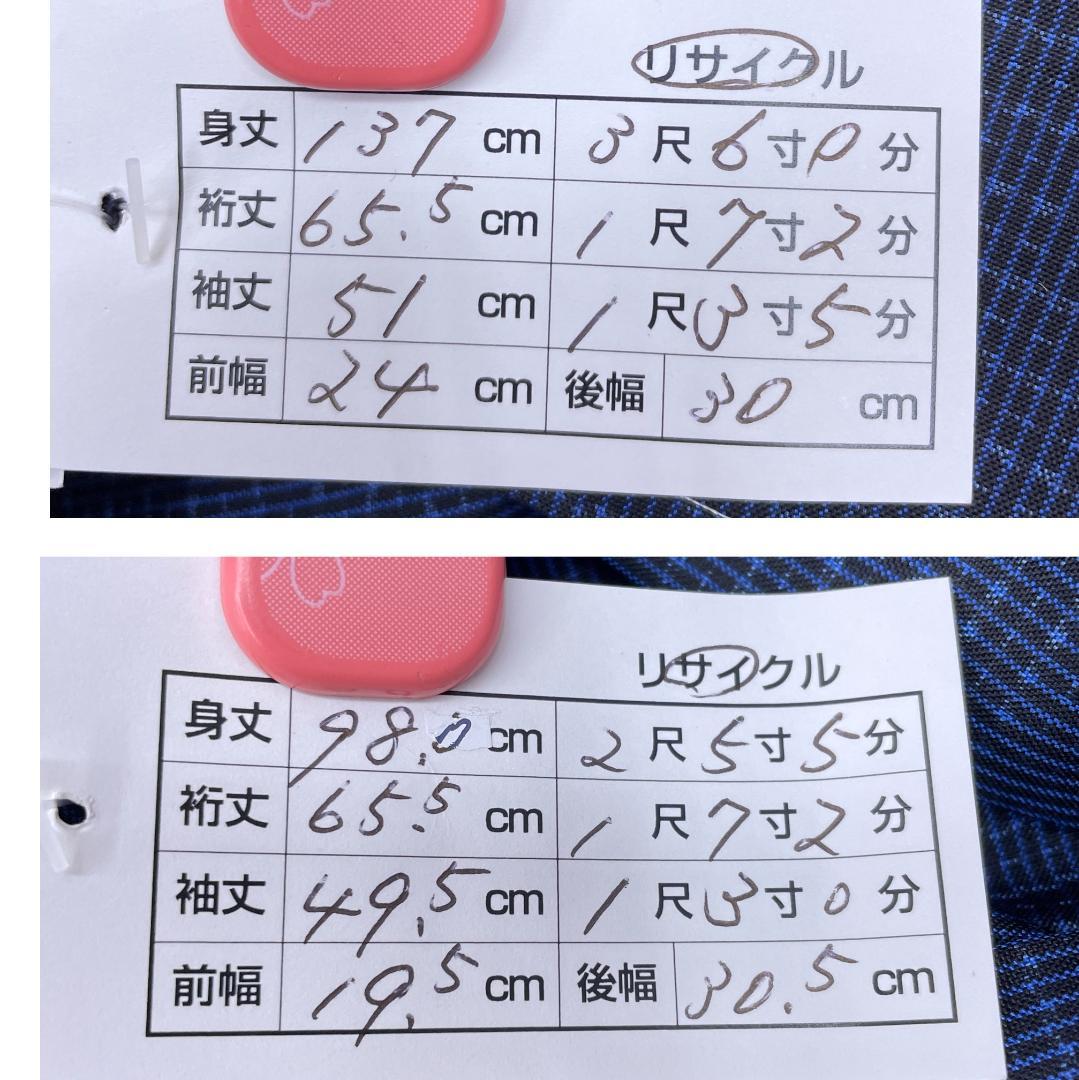 リサイクル
身丈 137 cm 3 尺 6 寸 0 分
裄丈 65.5 cm 1 尺 7 寸 2 分
袖丈 51 cm 1 尺 3 寸 5 分
前幅 24 cm 後幅 30 cm
リサイクル
身丈 98.0 cm 2 尺 5 寸 5 分
裄丈 65.5 cm 1 尺 7 寸 2 分
袖丈 49.5 cm 1 尺 3 寸 0 分
前幅 19.5 cm 後幅 30.5 cm